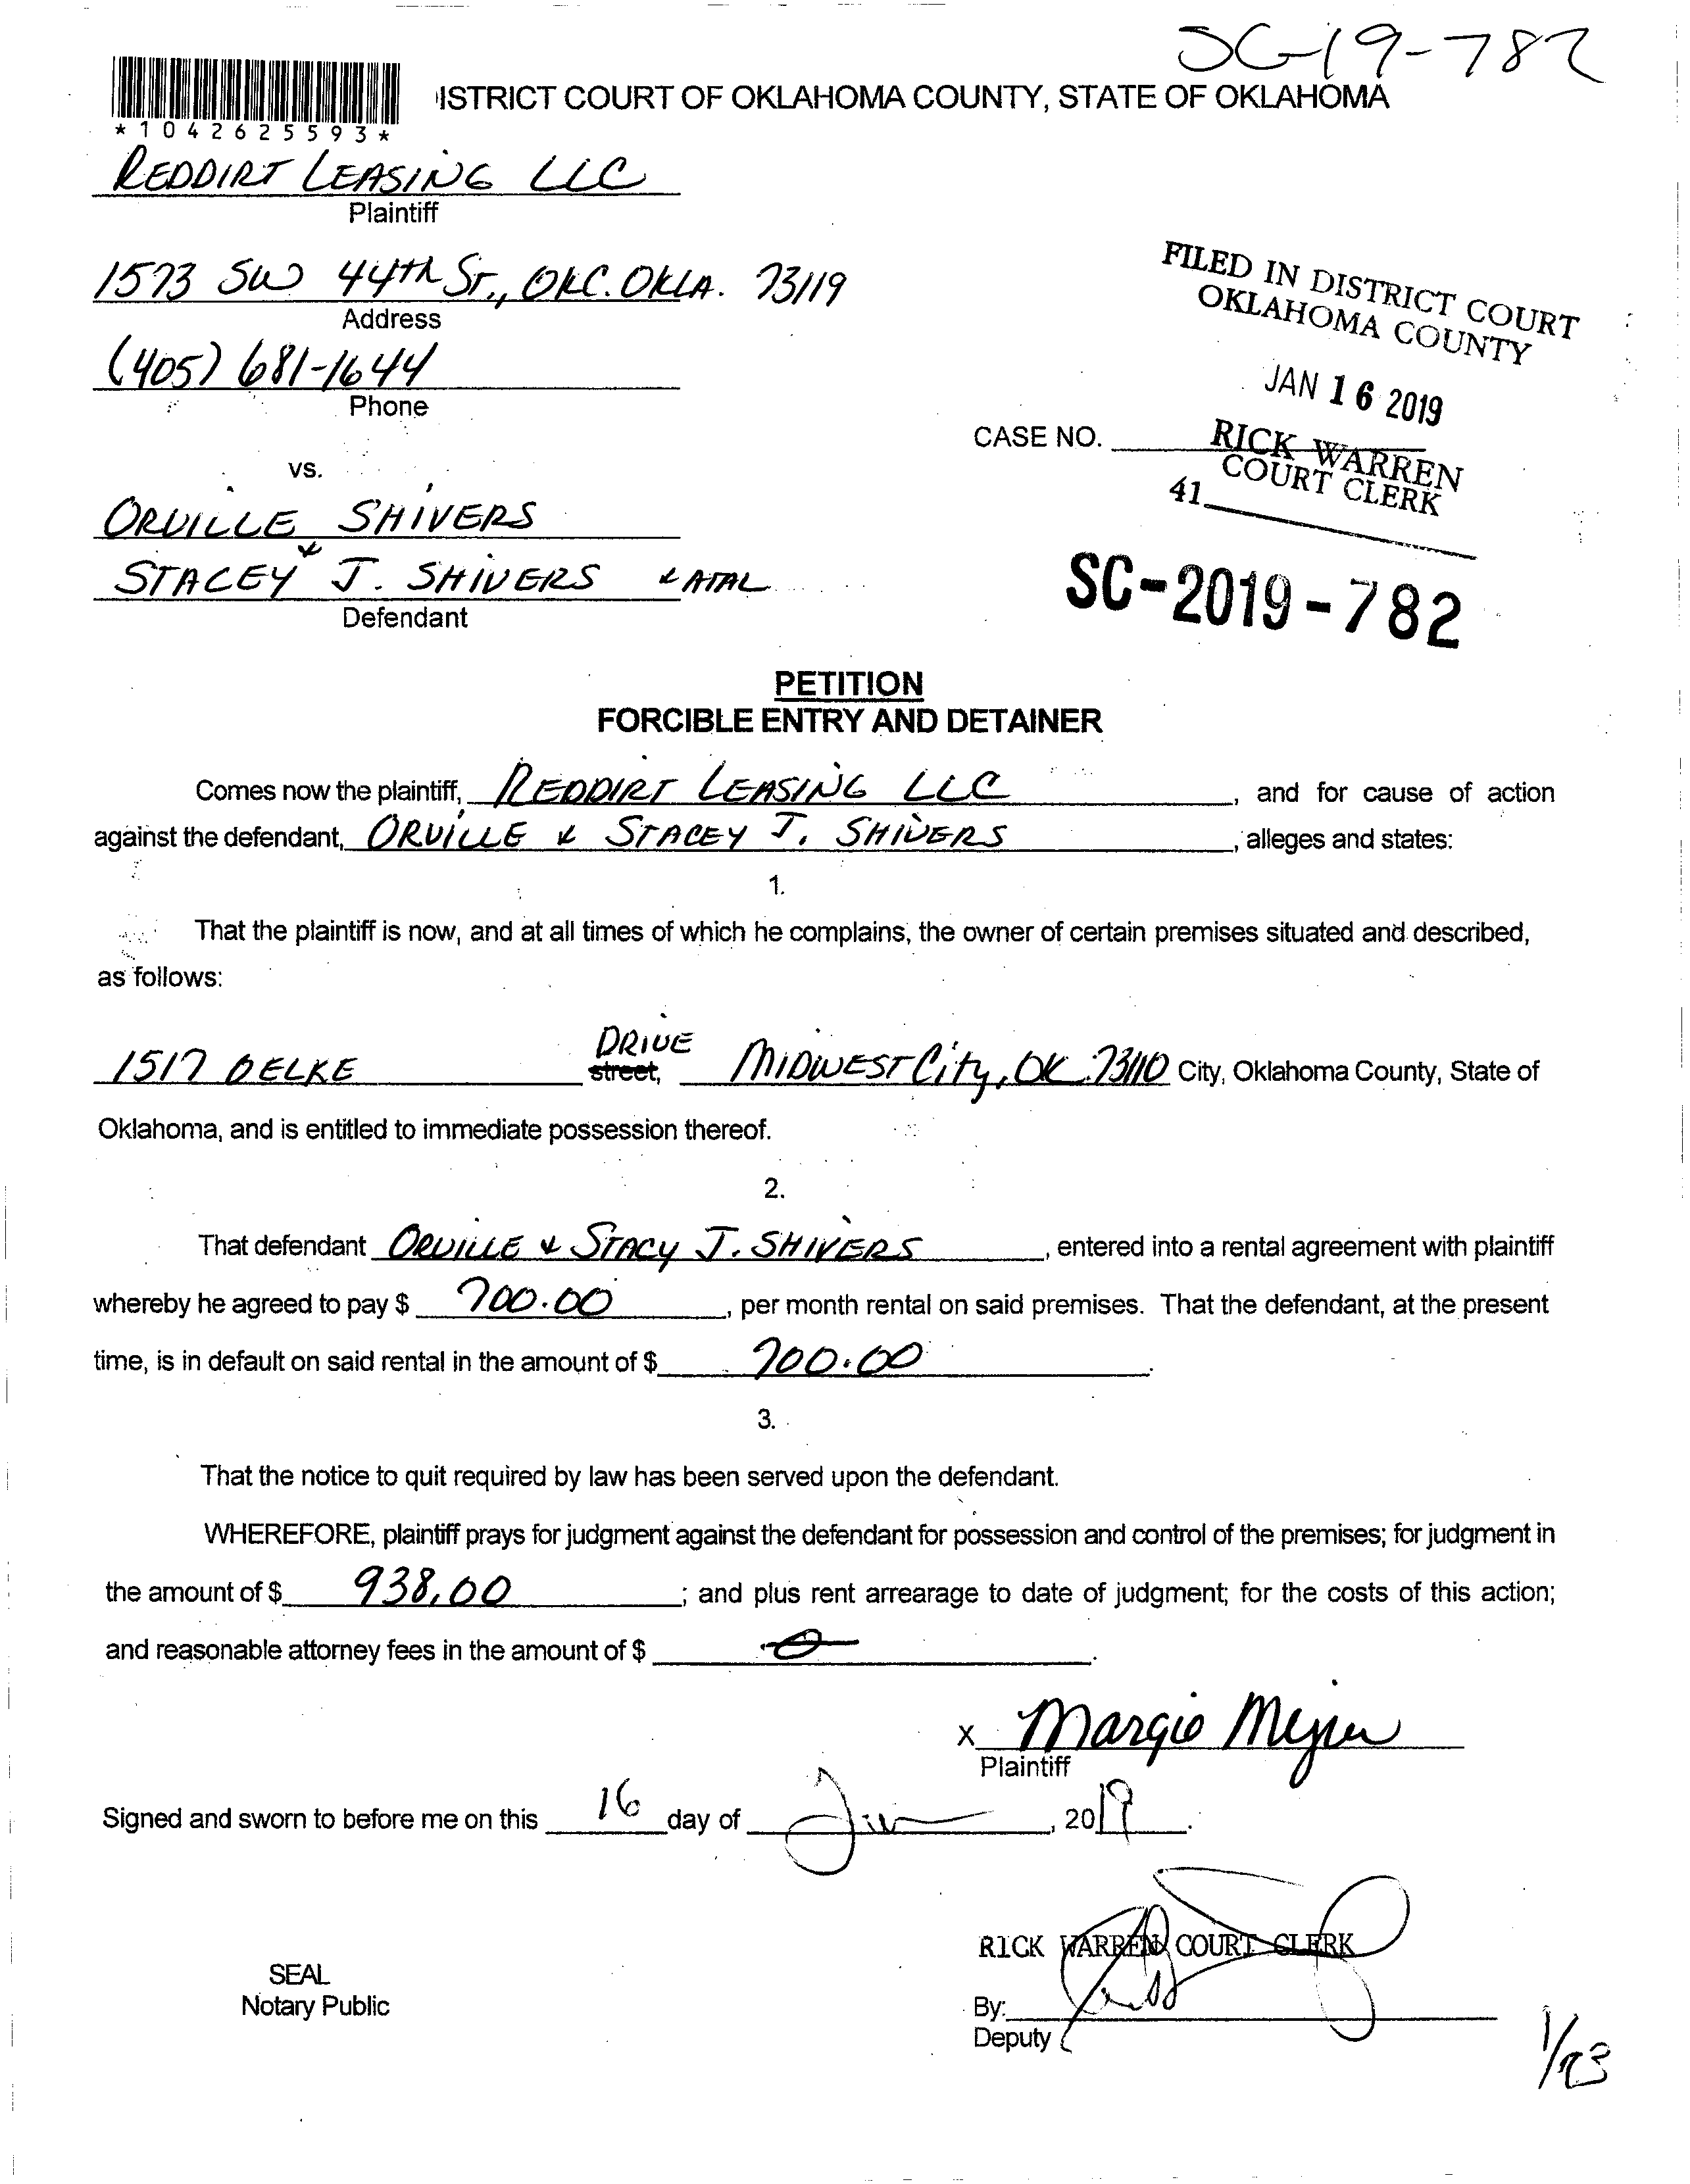 SC-19-782
ISTRICT COURT OF OKLAHOMA COUNTY, STATE OF OKLAHOMA
*1042625593*
REDDIRT LEASING LLC
Plaintiff
1573 SW 44th ST., OKC. OKLA. 73119
Address
(405) 681-1644
Phone
FILED IN DISTRICT COURT
OKLAHOMA COUNTY
JAN 16 2019
RICK WARREN
COURT CLERK
41
CASE NO.
vs.
ORVILLE SHIVERS
&
STACEY J. SHIVERS & ATAL
Defendant
SC-2019-782
PETITION
FORCIBLE ENTRY AND DETAINER
Comes now the plaintiff, REDDIRT LEASING LLC, and for cause of action
against the defendant, ORVILLE & STACEY J. SHIVERS, alleges and states:
1.
That the plaintiff is now, and at all times of which he complains, the owner of certain premises situated and described,
as follows:
DRIVE
1517 OELKE street, MIDWEST City, OK 73110 City, Oklahoma County, State of
Oklahoma, and is entitled to immediate possession thereof.
2.
That defendant ORVILLE & STACY J. SHIVERS, entered into a rental agreement with plaintiff
whereby he agreed to pay $ 700.00, per month rental on said premises. That the defendant, at the present
time, is in default on said rental in the amount of $ 700.00.
3.
That the notice to quit required by law has been served upon the defendant.
WHEREFORE, plaintiff prays for judgment against the defendant for possession and control of the premises; for judgment in
the amount of $ 938.00; and plus rent arrearage to date of judgment; for the costs of this action;
and reasonable attorney fees in the amount of $ 0.
X Margie
Plaintiff
Signed and sworn to before me on this 16 day of Jan, 2019.
RICK WARREN COURT CLERK
SEAL
Notary Public
By:
Deputy
1/23